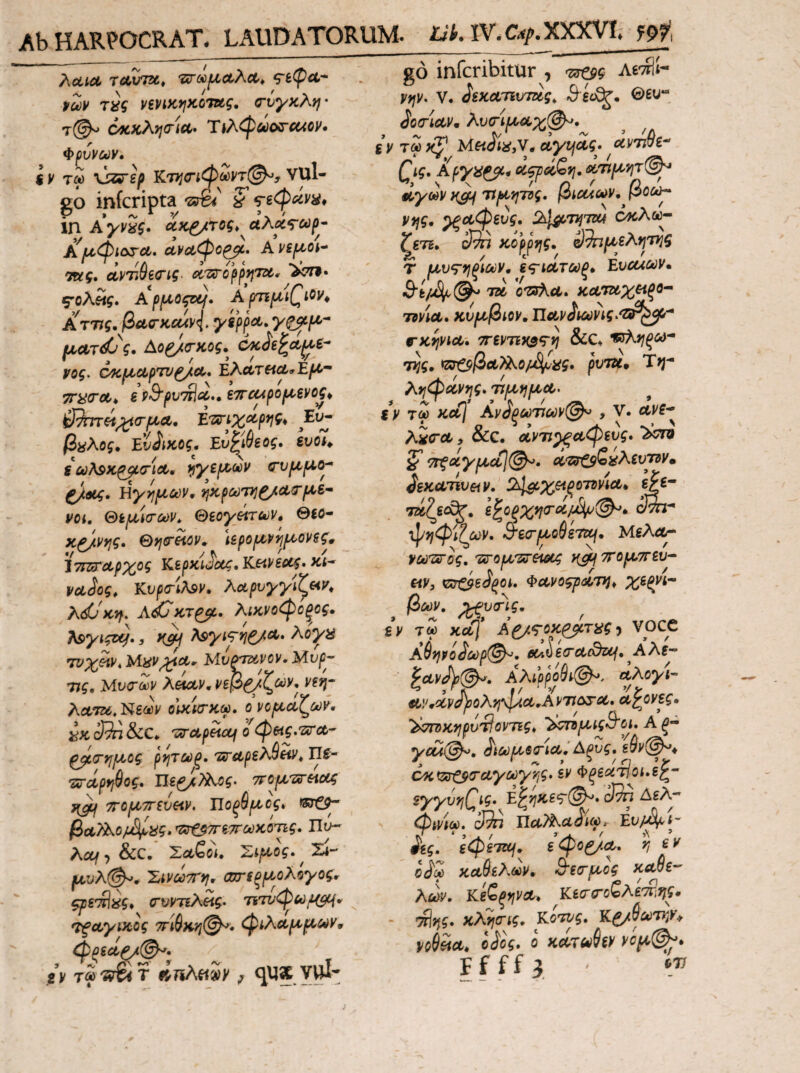 Ab HARPOCRAT. LAUDATORUM. Lib. IV. Cap. XXXVI. 597
λαια ταῦτα, πώμαλα. στεφα-
νῶν τοὺς νενικηκότας. σύγκλη-
τος ἐκκλησία. Τιλφώσσαιον.
Φρύνων.
ἐν τῷ ὑπὲρ Κτησιφῶντος, vul-
go inscripta περὶ τοῦ στεφάνου.
in Ἀγνοῦς. ἄκριτος. ἀλάστωρ.
Ἀμφίσσα. ἀναφορά. Ἀνεμοί-
τας. ἀντίθεσις. ἀπόρρητα. ἀπο-
στολεῖς. Ἁρμοσταί. Ἀρτεμίσιον.
Ἄττης. βασκαίνει. γέρρα. γραμ-
ματεύς. Δορίσκος. ἐκδεξάμε-
νος. ἐκμαρτυρία. Ἐλάτεια. Ἔμ-
πουσα. ἐνθρυπτα.. ἐπαιρόμενος.
ἐπιτείχισμα. Ἐπιχάρης. Εὔ-
βουλος. Εὔδικος. Εὐξίθεος. εὐοῖ.
ἑωλοκρασία. ἡγεμὼν συμμο-
ρίας. Ἡγήμων. ἠκρωτηριασμέ-
νοι. Θεμίσων. Θεογείτων. Θεο-
κρίνης. Θησεῖον. ἱερομνήμονες.
ἵππαρχος Κερκίδας. Κεινέας. κί-
ναδος. Κυρσίλον. λαρυγγίζειν.
λεύκη. Λεύκτρα. λικνοφόρος.
λογισταί., καὶ λογιστήρια. λόγου
τυχεῖν. Μουνιχία. Μυρτανον. Μύρ-
τις. Μυσῶν λείαν. νεβρίζων. νεή-
λατα. Νεῶν οἰκίσκῳ. ὀνομάζων.
οὐκ ἐπὶ &c. παρείαι ὄφεις. Πα-
ράσημος ῥήτωρ. παρελθεῖν. Πε-
πάρηθος. Πέριλλος. πομπείας
καὶ πομπεύειν. Πορθμός. προ-
βαλλομένους. προπεπωκότες. Πυ-
λαι, &c. Σάβοι. Σιμός. Σί-
μυλος. Σινώπη. σπερμολόγος.
στρεπτούς. συντελεῖς. τετύφωμαι.
τραγικὸς πίθηκος. φιλάμμων.
φρεάριος.
ἐν τῷ περὶ τῶν ἀτελειῶν, quæ vul-
gò inscribitur, πρὸς Λεπτί-
νην. V. δεκατευτάς. θεᾶς. Θευ-
δοσίαν. Λυσίμαχος.
ἐν τῷ κατὰ Μειδίου, V. ἀγυιᾶς. ἀντιθε-
σις. Ἀργουρα. ἀστράβη. ἀτίμητος
ἀγὼν καὶ τιμητός. βιαίων. βοώ-
νης. γραφεύς. Διαιτηταὶ ἐκλώ-
ζετε. ἐπὶ κόρρης. ἐπιμελητὴς
τῶν μυστηρίων. ἑστιάτωρ. Εὐαίων.
θέμενος τὰ ὅπλα. καταχειρο-
τονία. κυμβίον. Πανδιωνίς. παρα-
σκηνία. πεντηκοστὴ &c. πληρω-
τής. προβαλλομένους. ῥυτά. Τη-
ληφάνης. τίμημα.
ἐν τῷ κατὰ Ἀνδροτίωνος, V. ἀνε-
λοῦσα, &c. ἀντιγραφεύς. ἀπὸ
τοῦ πράγματος. ἀπροβούλευτον.
δεκατεύειν. Διαχειροτονία. ἐξε-
τάζεσθαι. ἐξορχησάμενος. ἐπι-
ψηφίζων. θεσμοθέται. Μελα-
νωπός. πομπείας καὶ πομπεύ-
ειν, πρόεδροι. Φανοστράτη. χερνί-
βων. χρυσίς.
ἐν τῷ κατ' Ἀριστοκράτους, voce
Ἀθηνόδωρος. αἰδέσασθαι. Ἀλέ-
ξανδρος. Ἀλιρρόθιος. ἀλογί-
ειν. ἀνδροληψία. Ἀντισσα. ἄξονες.
ἀποκηρύττοντες. ἀπόμισθοι. Ἀρ-
γαῖος. διωμοσία. Δρῦς. ἔθνος.
ἐκ προσαγωγῆς. ἐν Φρεαττοῖ. ἐξ-
εγγυήσις. Ἐξήκεστος. ἐπὶ Δελ-
φινίῳ. ἐπὶ Παλλαδίῳ, Εὐμενί-
δες. ἐφέται. ἐφορία. ἢ ἐν
ὁδῷ καθελών. θεσμὸς καθε-
λών. Κεβρηνα. Κερσοβλέπτης.
της. κλῆσις. Κότυς. Κριθωτήν.
νοθεῖα. ὁδός. ὁ κάτωθεν νόμος.
Ffff 3 ὅτι